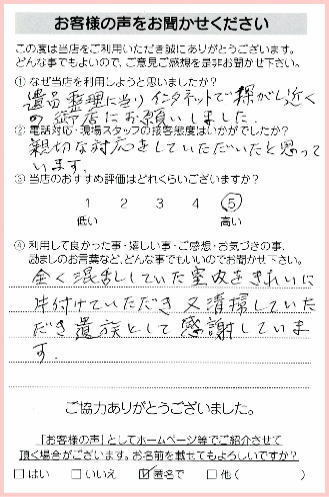 お客様の声をお聞かせください
この度は当店をご利用いただき誠にありがとうございます。
どんな事でもよいので、ご意見ご感想を是非お聞かせ下さい。
① なぜ当店を利用しようと思いましたか?
遺品整理に当りインタネットで探がし近く
の御店にお願いしました.
② 電話対応・現場スタッフの接客態度はいかがでしたか?
親切な対応をしていただいたと思って
います.
③ 当店のおすすめ評価はどれくらいございますか?
1 2 3 4 5
低い 高い
④ 利用して良かった事・嬉しい事・ご感想・お気づきの事、
励ましのお言葉など、どんな事でもいいのでお聞かせ下さい。
全く混乱していた室内をきれいに
片付けていただき 又清掃していた
だき遺族として感謝していま
す.
ご協力ありがとうございました。
「お客様の声」としてホームページ等でご紹介させて
頂く場合がございます。お名前を載せてもよろしいですか?
□はい □いえ ☑匿名で □他( )